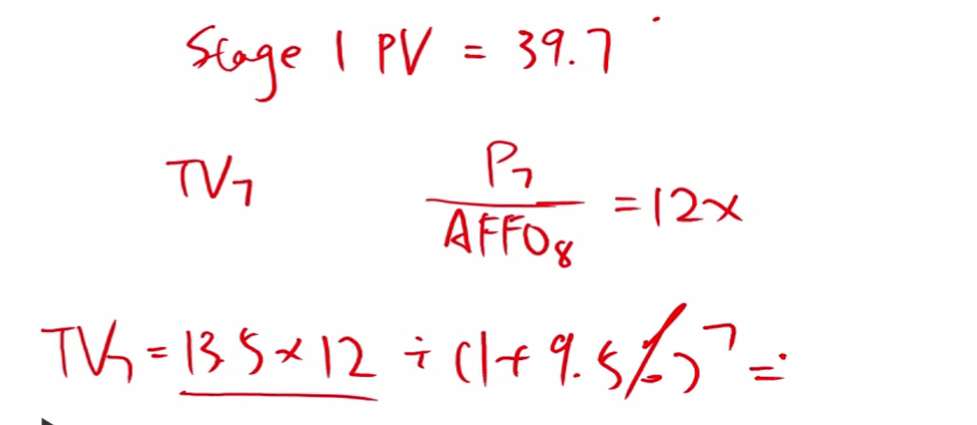 Stage 1 PV = 39.7
TV₇
P₇
AFFO₈
= 12x
TV₇ = 13.5 × 12 ÷ (1 + 9.5%)⁷ =